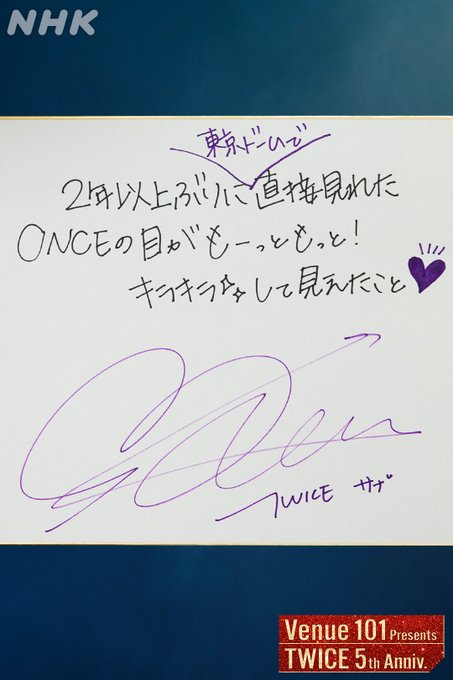 NHK
東京ドームで
2年以上ぶりに直接見れた
ONCEの目がもーっともっと!
キラキラして見えたこと
TWICE サナ
Venue 101 Presents
TWICE 5th Anniv.